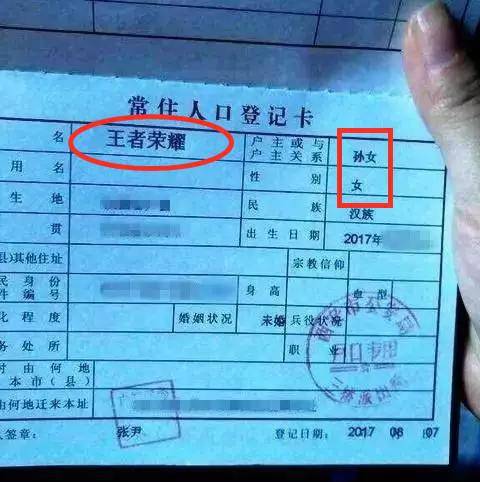 常住人口登记卡
名 王者荣耀 户主或与户主关系 孙女
用名 性别 女
生地 民族 汉族
贯 出生日期 2017年
县)其他住址 宗教信仰
民身份件编号 身高 血型
化程度 婚姻状况 未婚 兵役状况
务处所 职业
时由何地本市(县)
由何地迁来本址
人签章: 张尹 登记日期: 2017 08 07